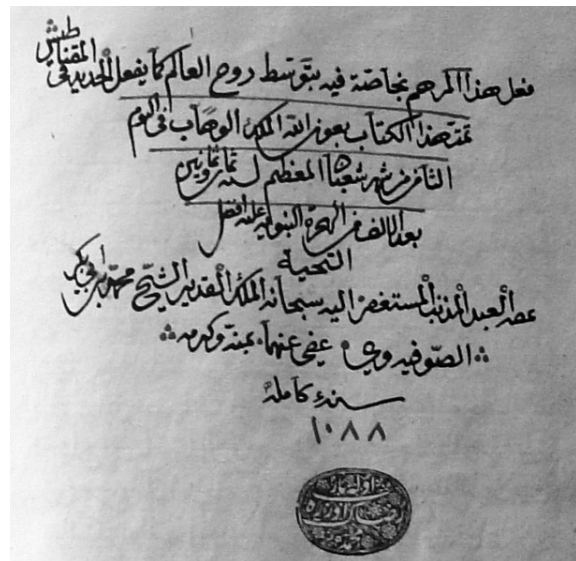 فعل هذا المرهم بخاصته فيه بتوسط روح العالم كما يفعل الحديد فى المقناطيس
تمت هذا الكتاب بعون الله الملك الوهاب فى اليوم
الثامن من شهر شعبان المعظم لسنه ثمان وثمانين
بعد الالف من الهجرة النبويه عليه افضل
التحية
عن العبد المذنب المستغفر اليه سبحانه الملك القدير الشيخ محمد بن ابى بكر
الصوفيه وى عفى عنهما بمنه وكرمه
سنه كامله
١٠٨٨